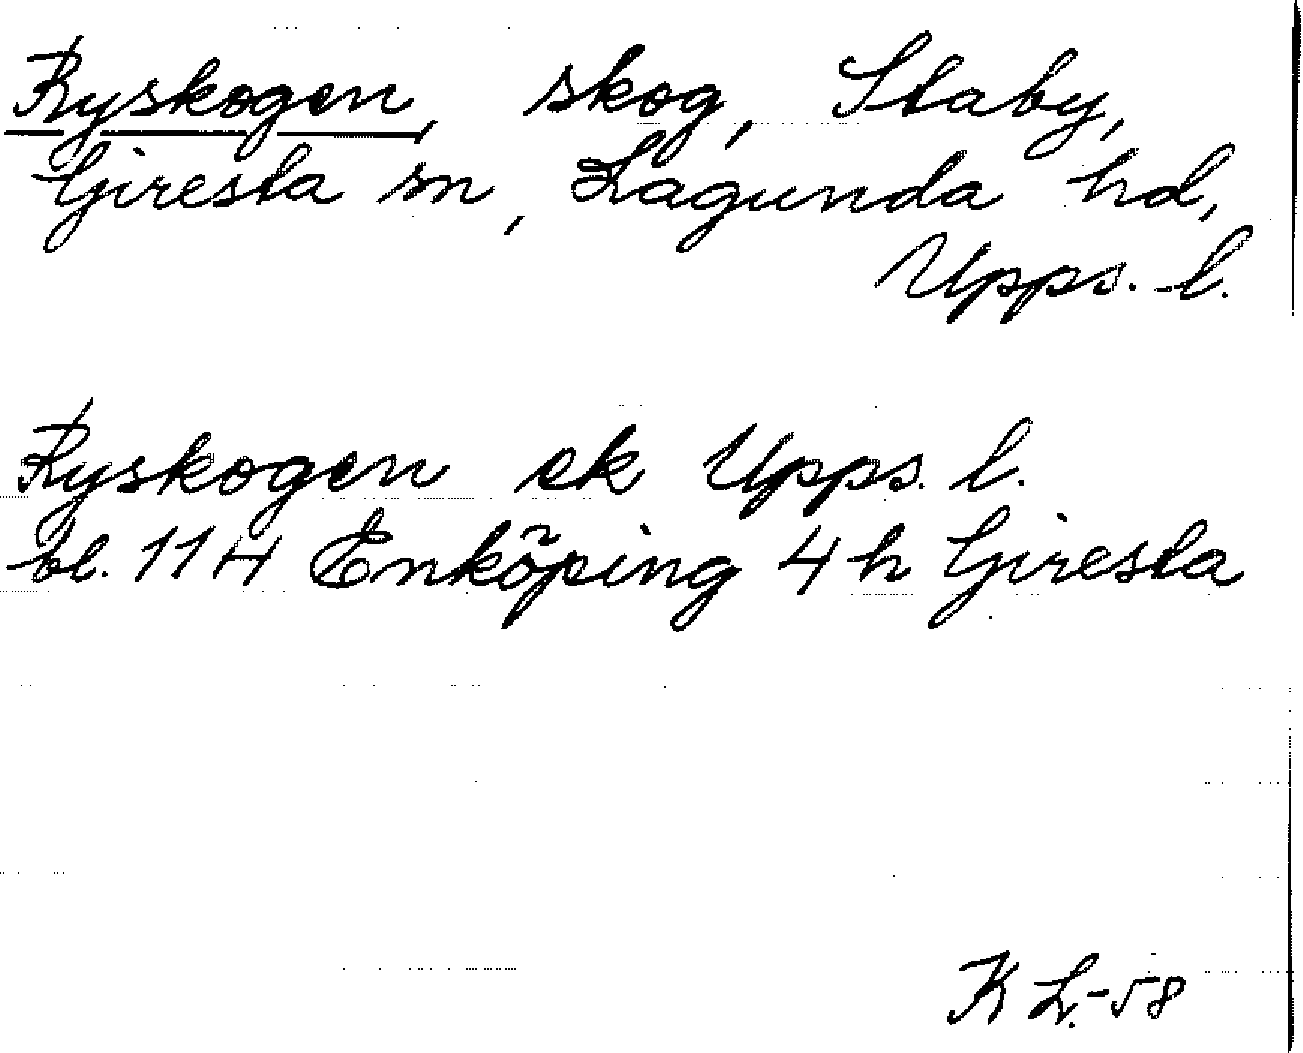 Ryskogen, skog, Staby,
Giresta sn, Lagunda hd,
Upps. l.
Ryskogen ek Upps. l.
bl. 114 Enköping 4 h Giresta
K L.-58